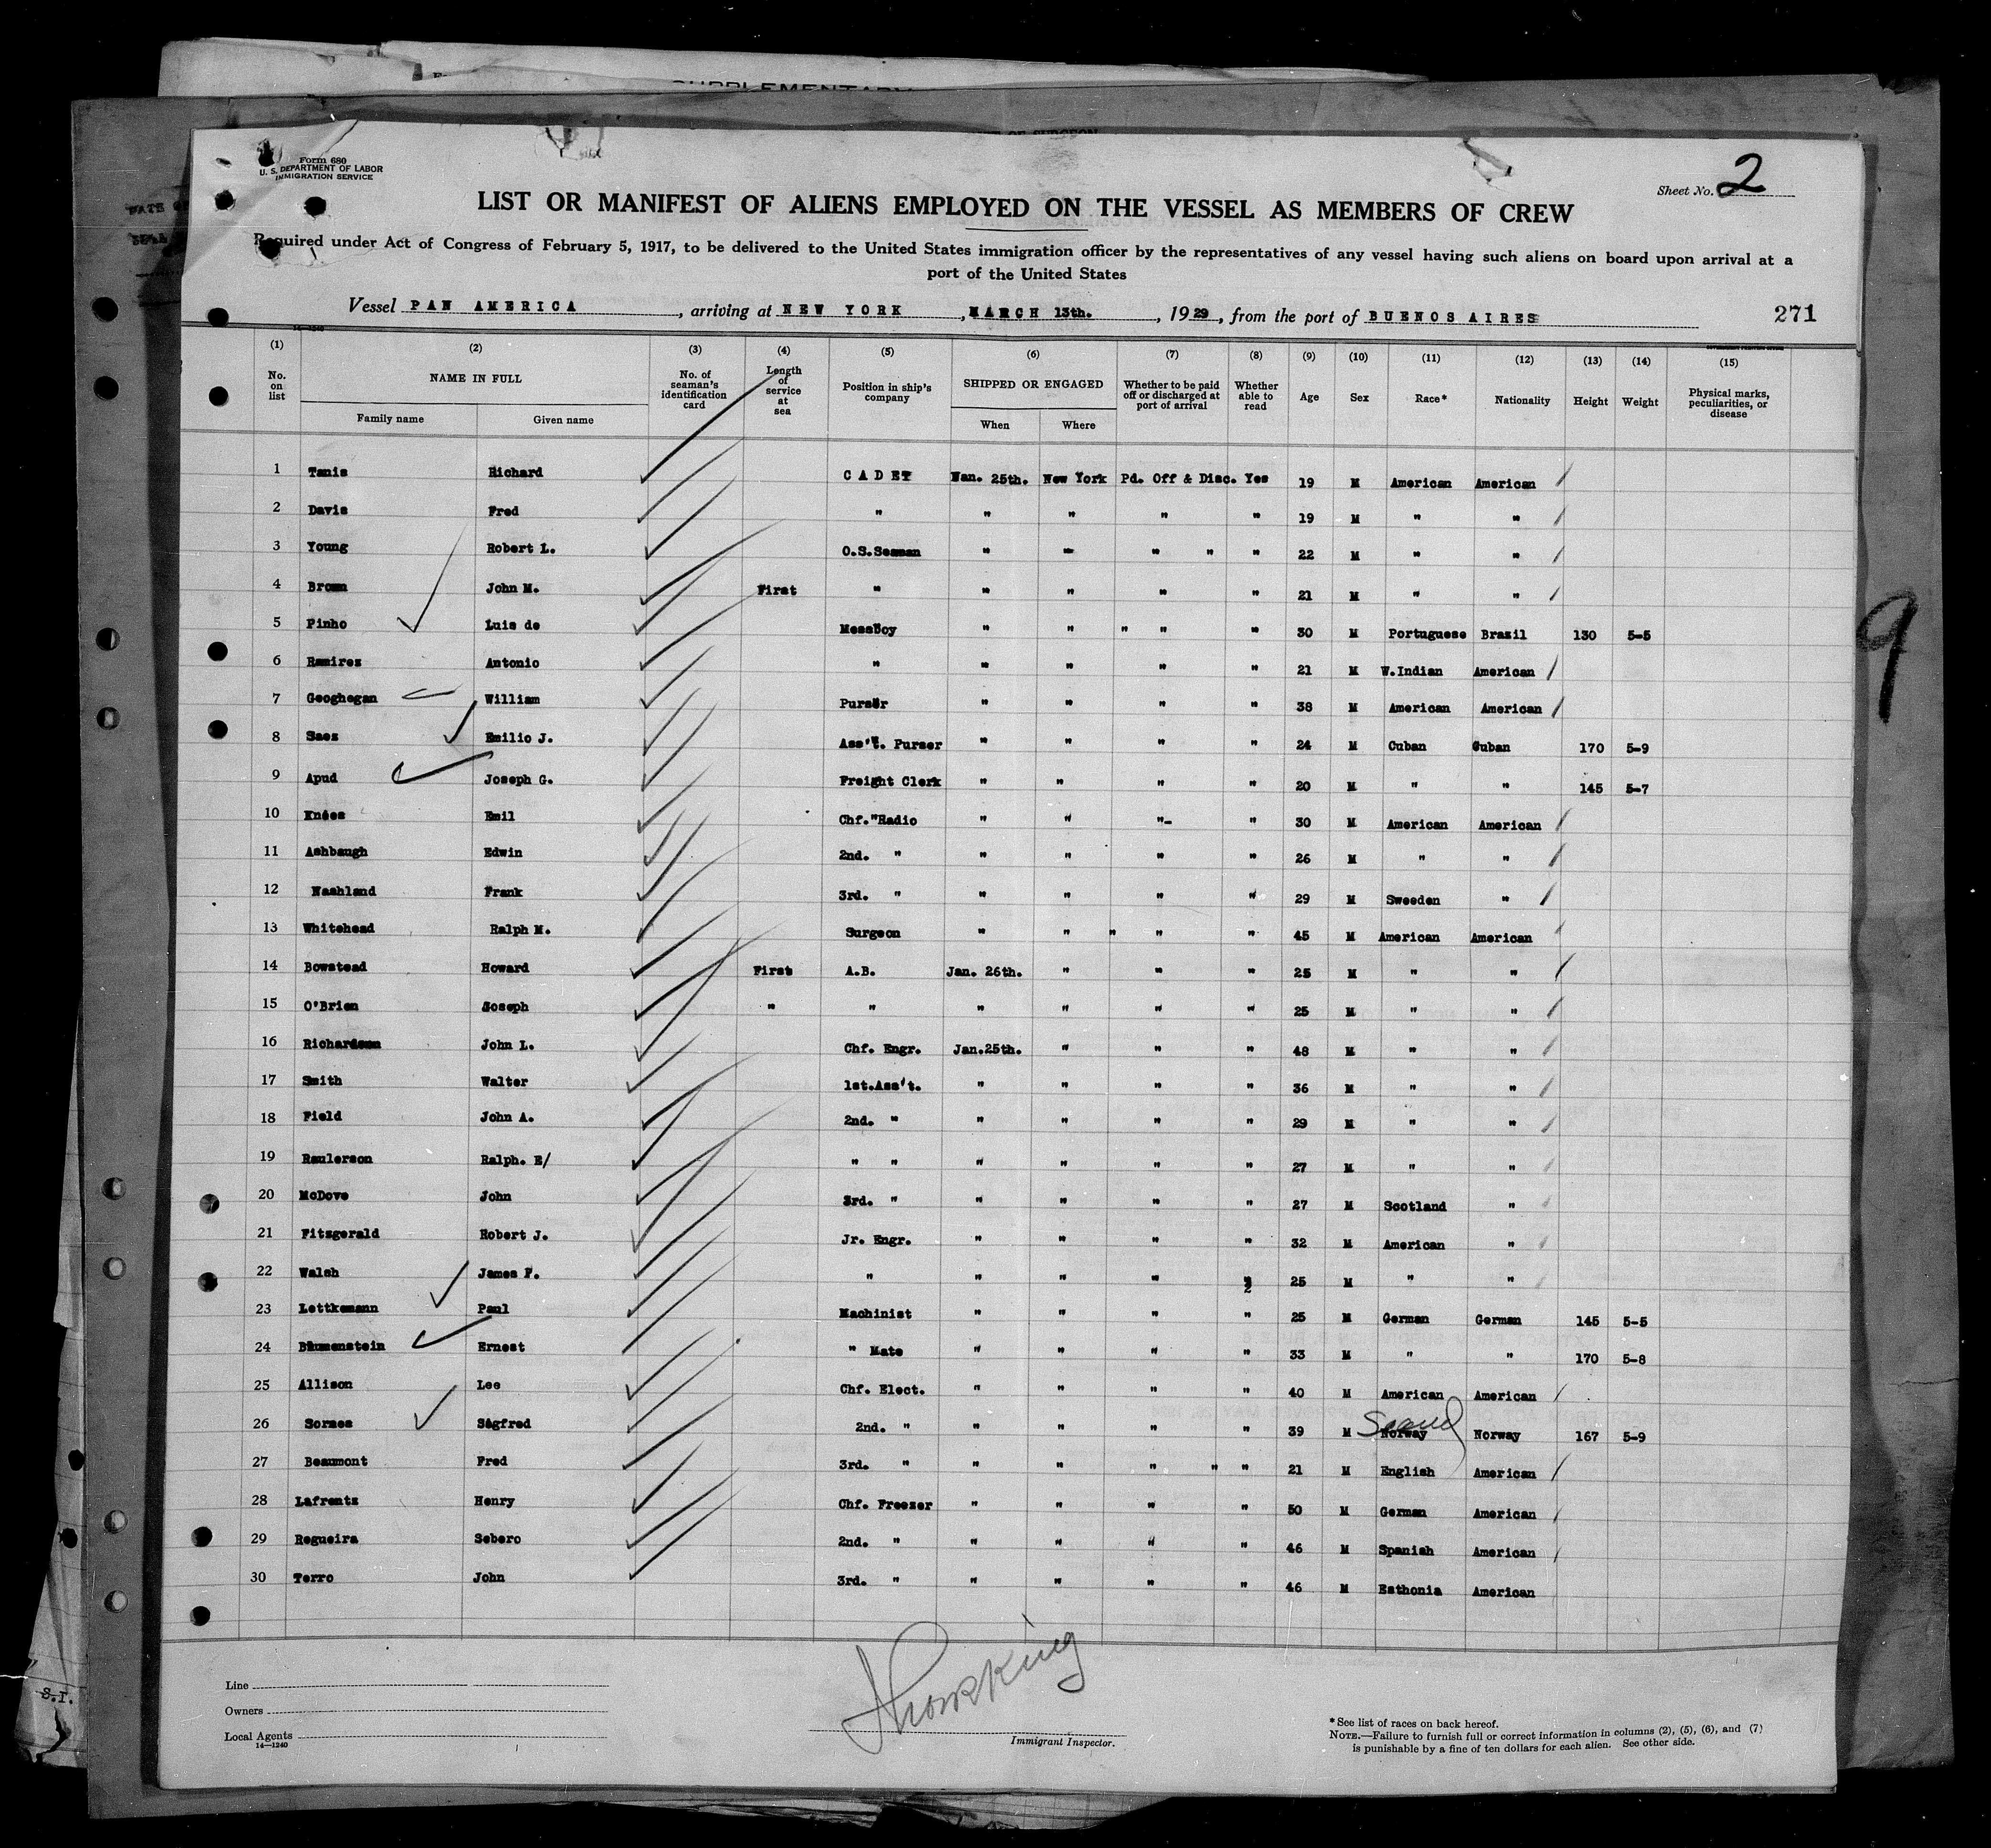 SUPPLEMENTARY
Form 680
U. S. DEPARTMENT OF LABOR
IMMIGRATION SERVICE
Sheet No. 2
LIST OR MANIFEST OF ALIENS EMPLOYED ON THE VESSEL AS MEMBERS OF CREW
Required under Act of Congress of February 5, 1917, to be delivered to the United States immigration officer by the representatives of any vessel having such aliens on board upon arrival at a
port of the United States
Vessel PAN AMERICA, arriving at NEW YORK, MARCH 13th., 1929, from the port of BUENOS AIRES 271
(1) (2) (3) (4) (5) (6) (7) (8) (9) (10) (11) (12) (13) (14) (15)
No. on list NAME IN FULL Family name Given name No. of seaman's identification card Length of service at sea Position in ship's company SHIPPED OR ENGAGED When Where Whether to be paid off or discharged at port of arrival Whether able to read Age Sex Race* Nationality Height Weight Physical marks, peculiarities, or disease
1 Tanis Richard CADET Wan. 25th. New York Pd. Off & Disc. Yes 19 M American American
2 Davis Fred " " " " " 19 M " "
3 Young Robert L. O.S.Seaman " " " " " 22 M " "
4 Brown John M. First " " " " " 21 M " "
5 Pinho Luis de MessBoy " " " " " 30 M Portuguese Brazil 130 5-5
6 Ramirez Antonio " " " " " 21 M W.Indian American
7 Geoghegan William Purser " " " " 38 M American American
8 Saez Emilio J. Ass't. Purser " " " " 24 M Cuban Cuban 170 5-9
9 Apud Joseph G. Freight Clerk " " " " 20 M " " 145 5-7
10 Knées Emil Chf. "Radio " " "- " 30 M American American
11 Ashbaugh Edwin 2nd. " " " " " 26 M " "
12 Nashland Frank 3rd. " " " " " 29 M Sweden "
13 Whitehead Ralph M. Surgeon " " " " " 45 M American American
14 Bowstead Howard First A.B. Jan. 26th. " " " 25 M " "
15 O'Brien Joseph " " " " " " 25 M " "
16 Richardson John L. Chf. Engr. Jan.25th. " " " 48 M " "
17 Smith Walter 1st.Ass't. " " " " 36 M " "
18 Field John A. 2nd. " " " " " 29 M " "
19 Raulerson Ralph. E/ " " " " " " 27 M " "
20 McDove John 3rd. " " " " " 27 M Scotland "
21 Fitzgerald Robert J. Jr. Engr. " " " " 32 M American "
22 Walsh James P. " " " " " 25 M " "
23 Lettkemann Paul Machinist " " " " 25 M German German 145 5-5
24 Blumenstein Ernest " Mate " " " " 33 M " " 170 5-8
25 Allison Lee Chf. Elect. " " " " 40 M American American
26 Sornes Sigfred 2nd. " " " " " 39 M Scand Norway Norway 167 5-9
27 Beaumont Fred 3rd. " " " " " " 21 M English American
28 Lafrentz Henry Chf. Freezer " " " " 50 M German American
29 Regueira Sebero 2nd. " " " " " 46 M Spanish American
30 Terro John 3rd. " " " " " 46 M Esthonia American
9
S.I.
Line
Owners
Local Agents
14—1240
Immigrant Inspector.
*See list of races on back hereof.
NOTE.—Failure to furnish full or correct information in columns (2), (5), (6), and (7)
is punishable by a fine of ten dollars for each alien. See other side.